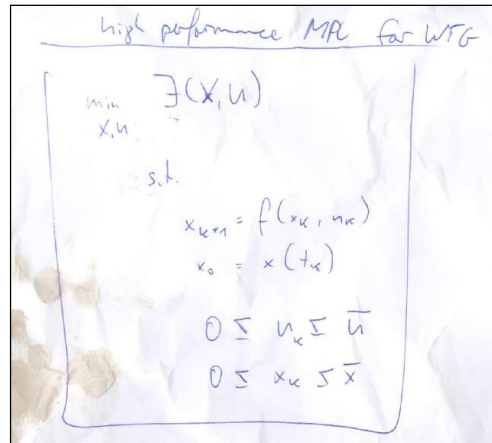 high performance MPC for WTG
min J(X,u)
x,u
s.t.
x_{k+1} = f(x_k, u_k)
x_0 = x(t_k)
0 ≤ u_k ≤ ū
0 ≤ x_k ≤ x̄